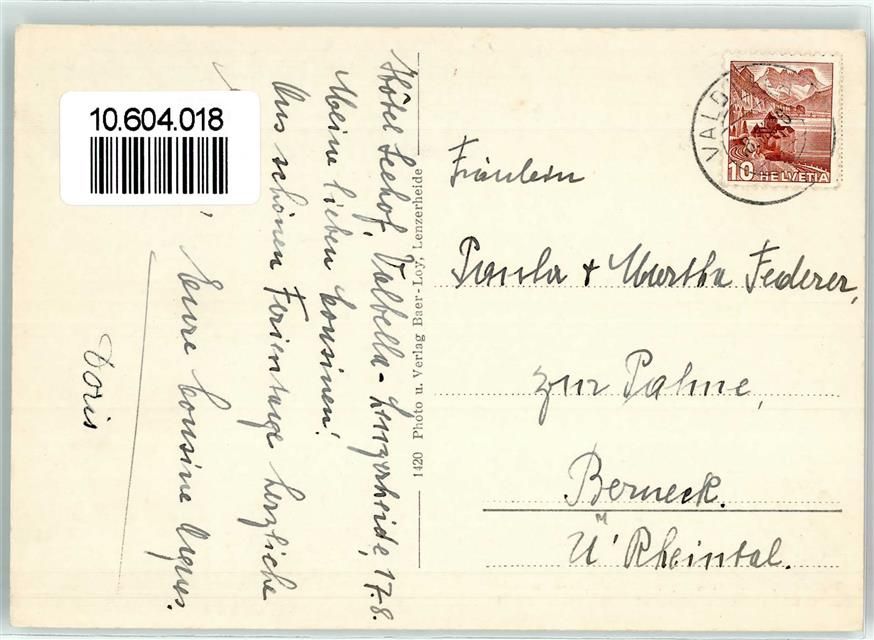 10.604.018
Hôtel Seehof, Valbella-Lenzerheide, 17.8.
Meine lieben Cousinen!
Aus schönen Ferientage herzliche
Eure Cousine Agnes.
Doris
1420 Photo u. Verlag Baer-Loy, Lenzerheide
VALB
10 HELVETIA
Fräulein
Paula + Martha Federer,
zur Palme,
Berneck.
U' Rheintal.